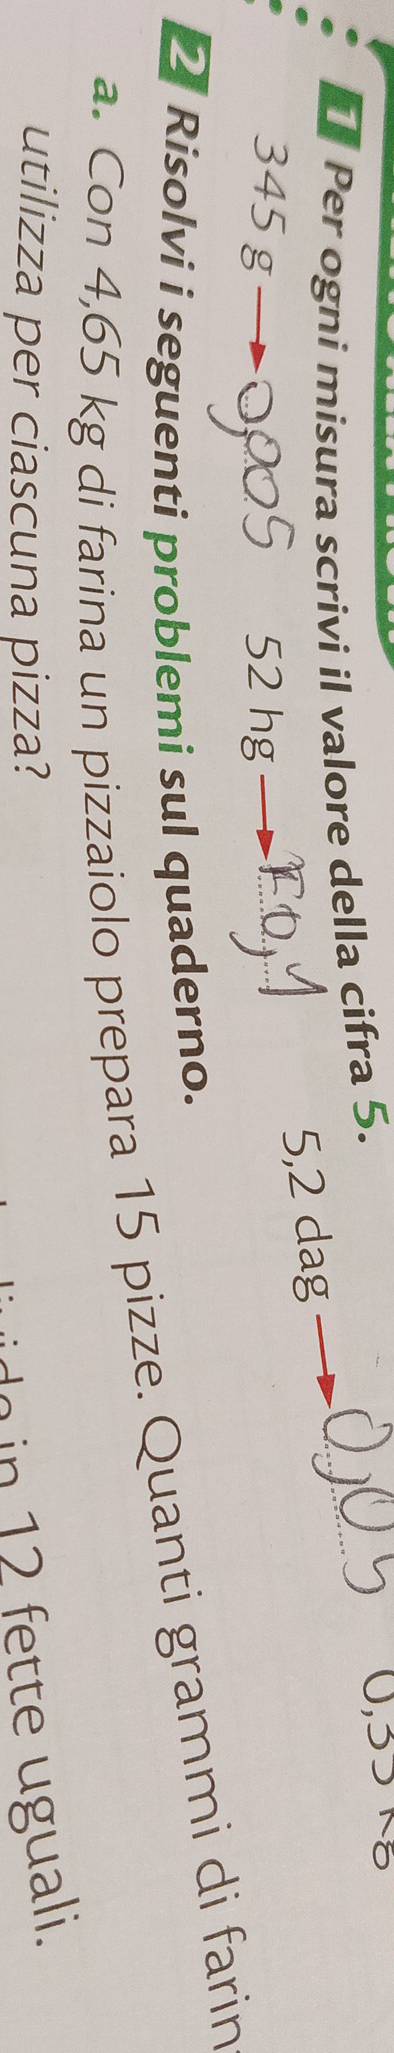 1 Per ogni misura scrivi il valore della cifra 5.
345 g → 0,005 52 hg → 5,2 dag → 0,05
2 Risolvi i seguenti problemi sul quaderno.
a. Con 4,65 kg di farina un pizzaiolo prepara 15 pizze. Quanti grammi di farin
utilizza per ciascuna pizza?
in 12 fette uguali.